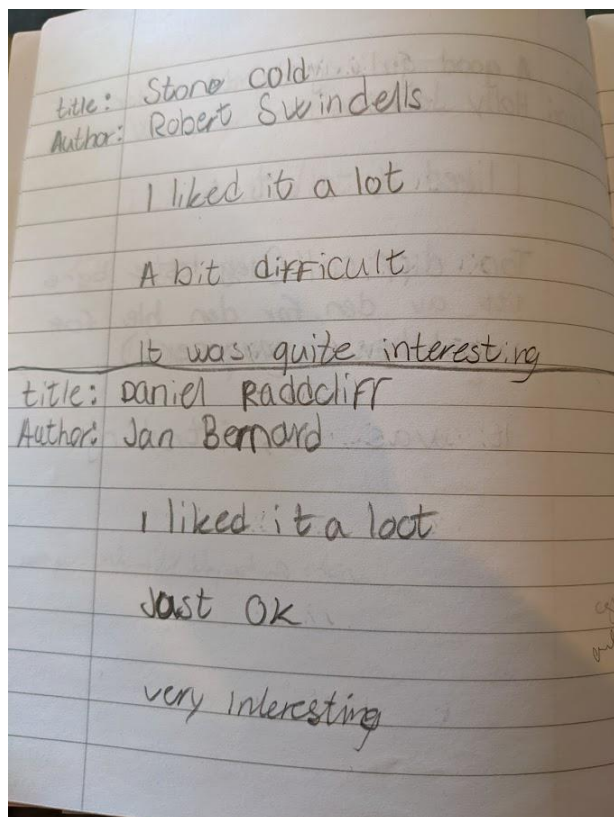 title: Stone cold
Author: Robert Swindells
I liked it a lot
A bit difficult
It was quite interesting
title: Daniel Raddcliff
Author: Jan Bernard
I liked it a loot
Just OK
very interesting